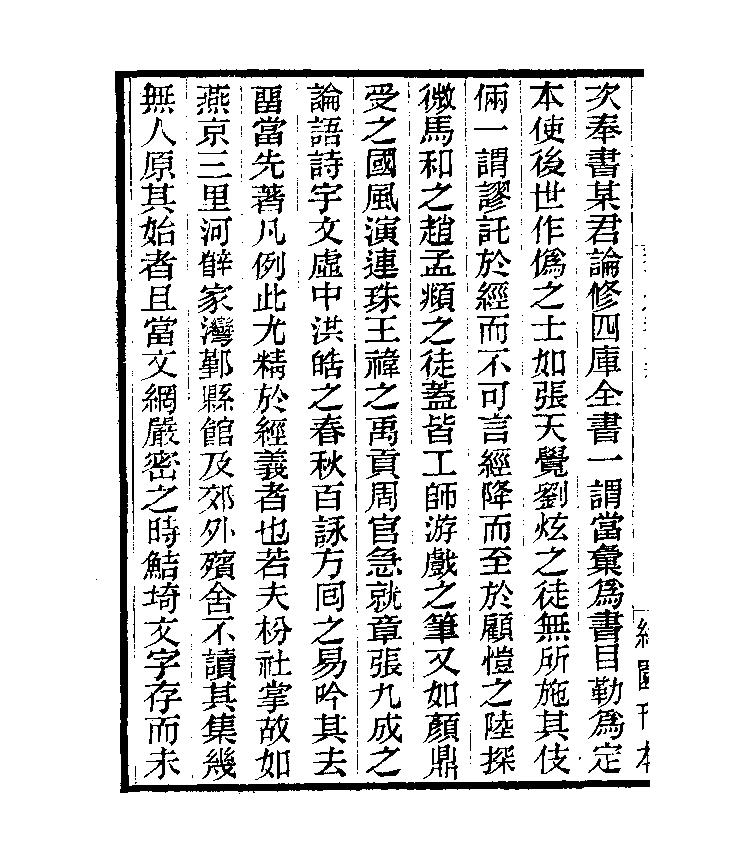 次奉書某君論修四庫全書一謂當彙爲書目勒爲定
本使後世作僞之士如張天覺劉炫之徒無所施其伎
倆一謂謬託於經而不可言經降而至於顧愷之陸探
微馬和之趙孟頫之徒蓋皆工師游戲之筆又如顏鼎
受之國風演連珠王褘之禹貢周官急就章張九成之
論語詩宇文虛中洪皓之春秋百詠方回之易吟其去
畱當先著凡例此尤精於經義者也若夫枌社掌故如
燕京三里河薛家灣鄞縣館及郊外殯舍不讀其集幾
無人原其始者且當文網嚴密之時鮚埼文字存而未
刊本